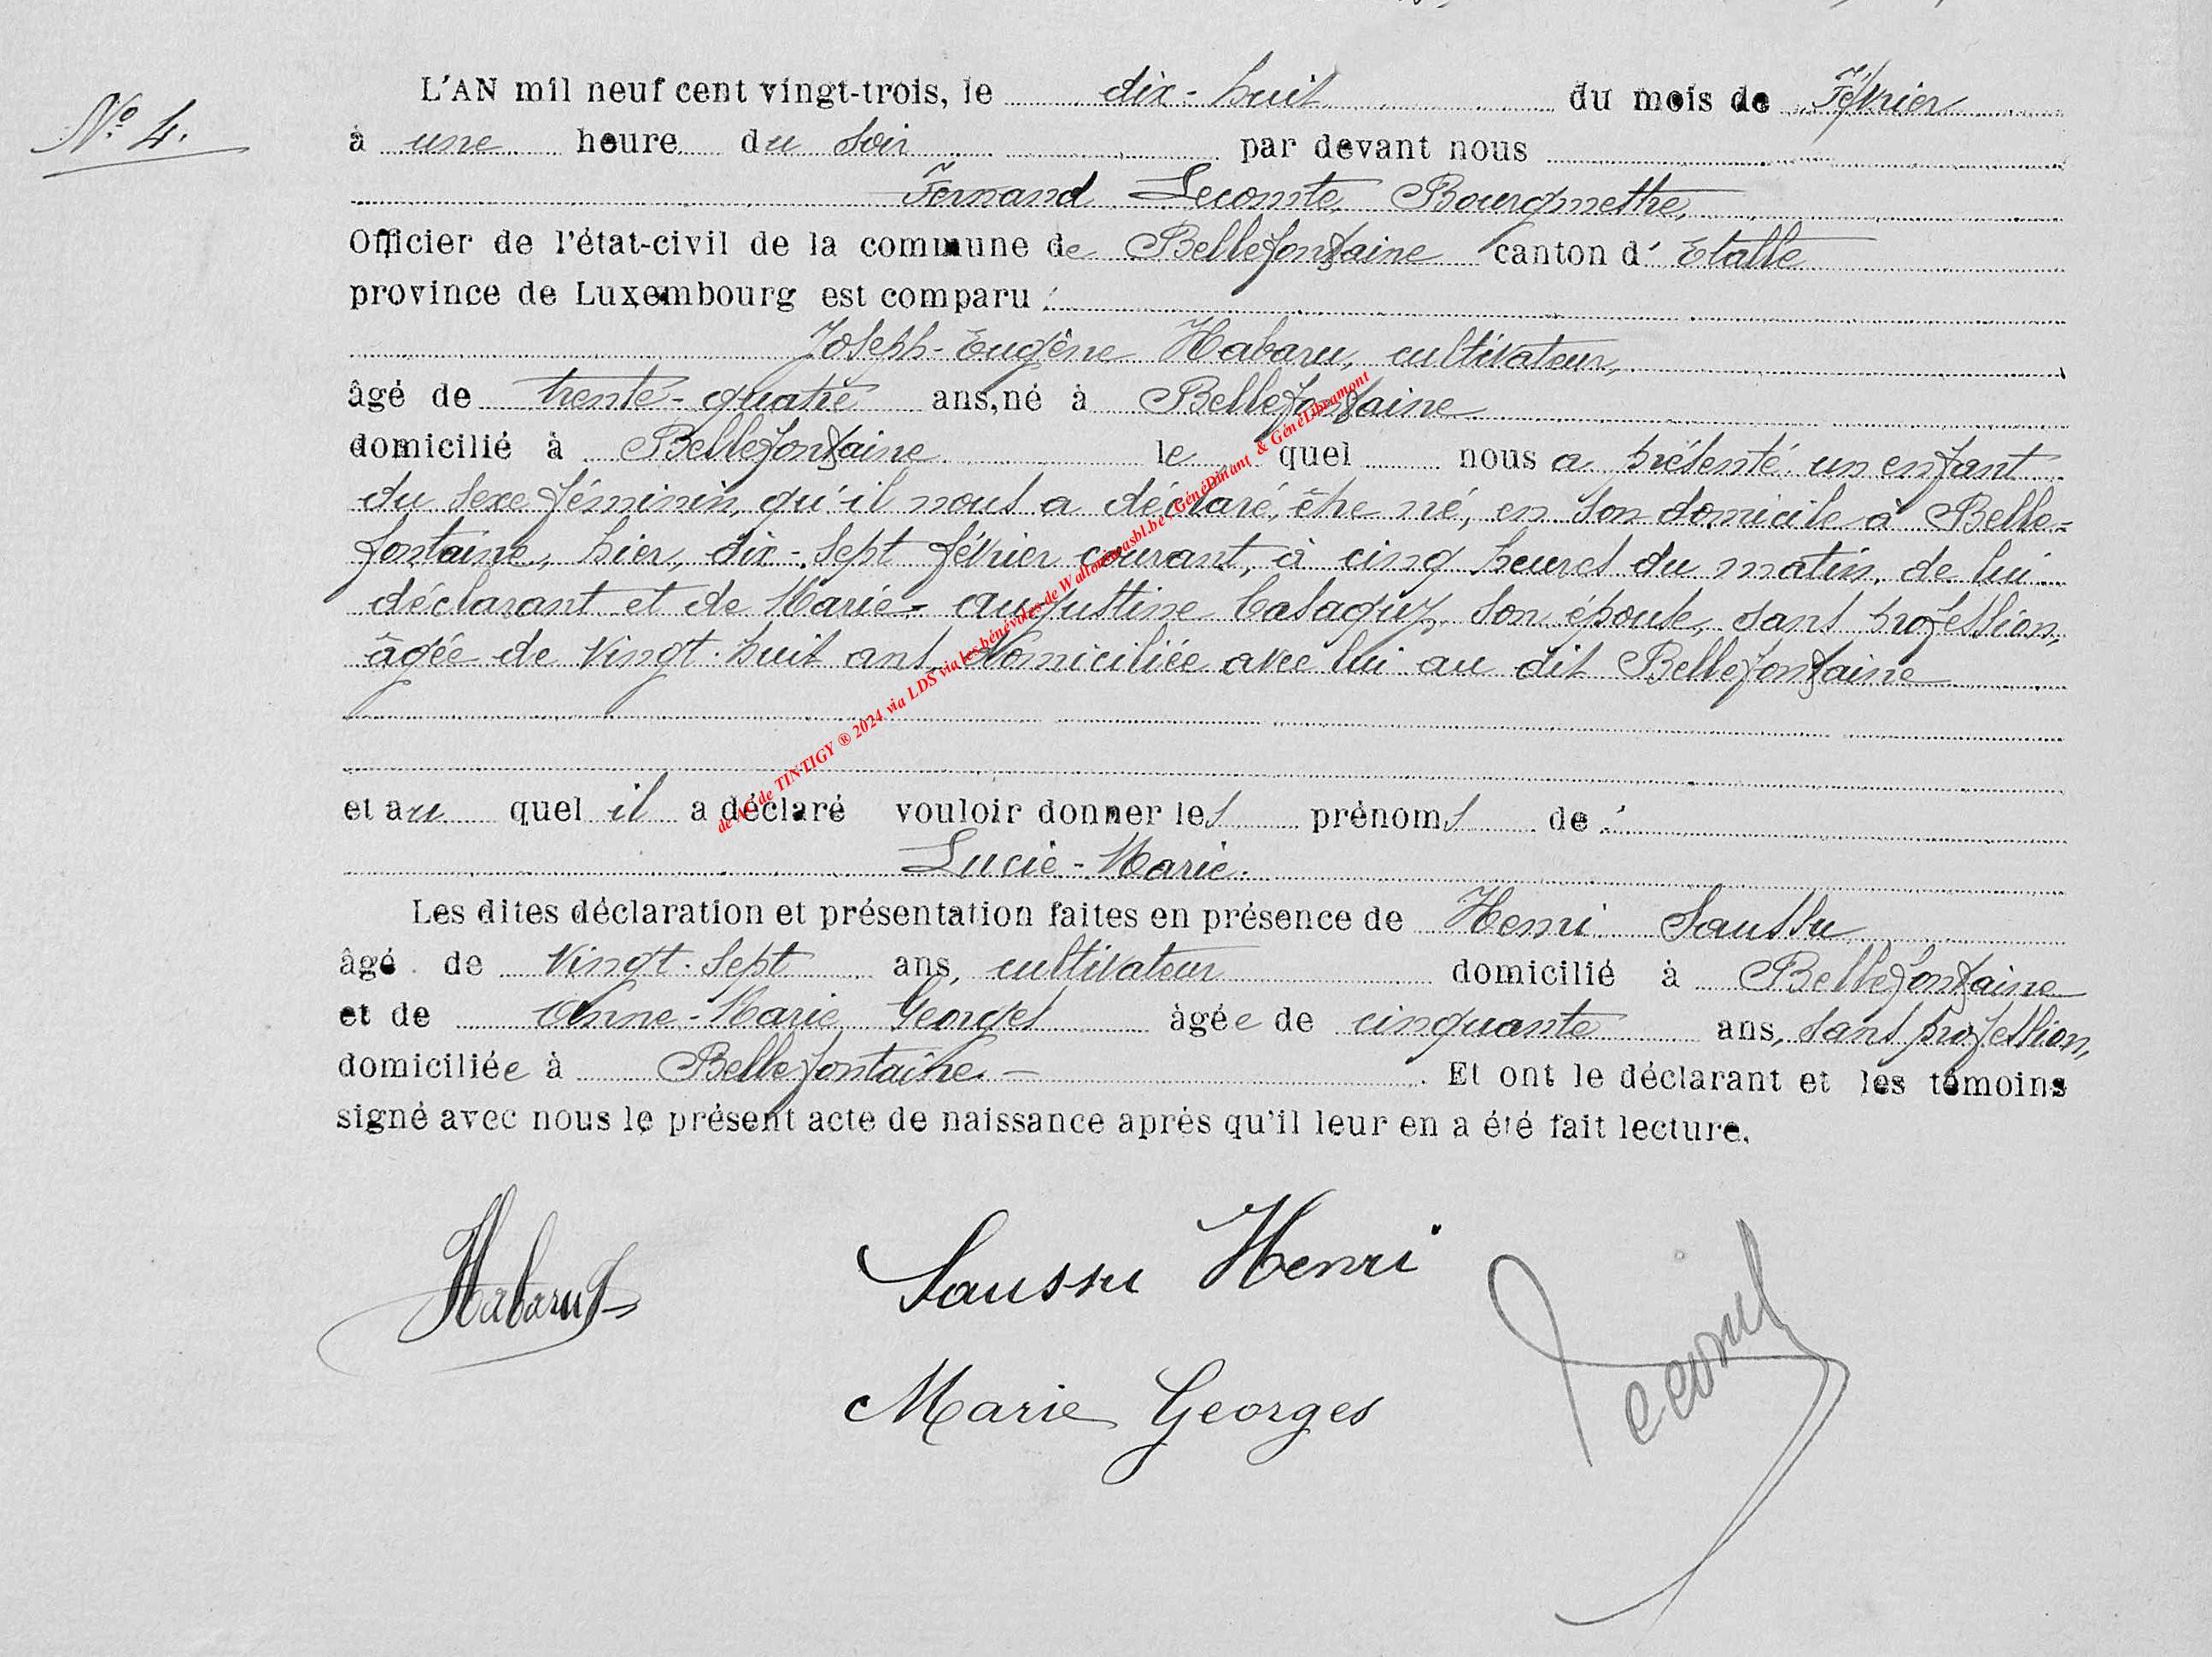 N° 4.
L'AN mil neuf cent vingt-trois, le dix-huit du mois de Février
à une heure du soir par devant nous
Fernand Lecomte, Bourgmestre,
Officier de l'état-civil de la commune de Bellefontaine canton d' Etalle
province de Luxembourg est comparu :
Joseph-Eugène Habaru, cultivateur,
âgé de trente-quatre ans, né à Bellefontaine
domicilié à Bellefontaine le quel nous a présenté un enfant
du sexe féminin, qu'il nous a déclaré, être né, en son domicile à Belle-
fontaine, hier, dix-sept février courant, à cinq heures du matin, de lui
déclarant et de Marie-Augustine Casaquy, son épouse, sans profession,
âgée de vingt-huit ans, domiciliée avec lui au dit Bellefontaine
et au quel il a déclaré vouloir donner les prénoms de :
Lucie-Marie.
Les dites déclaration et présentation faites en présence de Henri Saussu
âgé de vingt-sept ans, cultivateur domicilié à Bellefontaine
et de Anne-Marie Georges âgée de cinquante ans, sans profession,
domiciliée à Bellefontaine. — Et ont le déclarant et les témoins
signé avec nous le présent acte de naissance après qu'il leur en a été fait lecture.
Habaru J
Saussu Henri
Lecomte
Marie Georges
de AC de TINTIGY ® 2024 via LDS via les bénévoles de Wallonicaasbl.be - GénéDinant & GénéLibramont